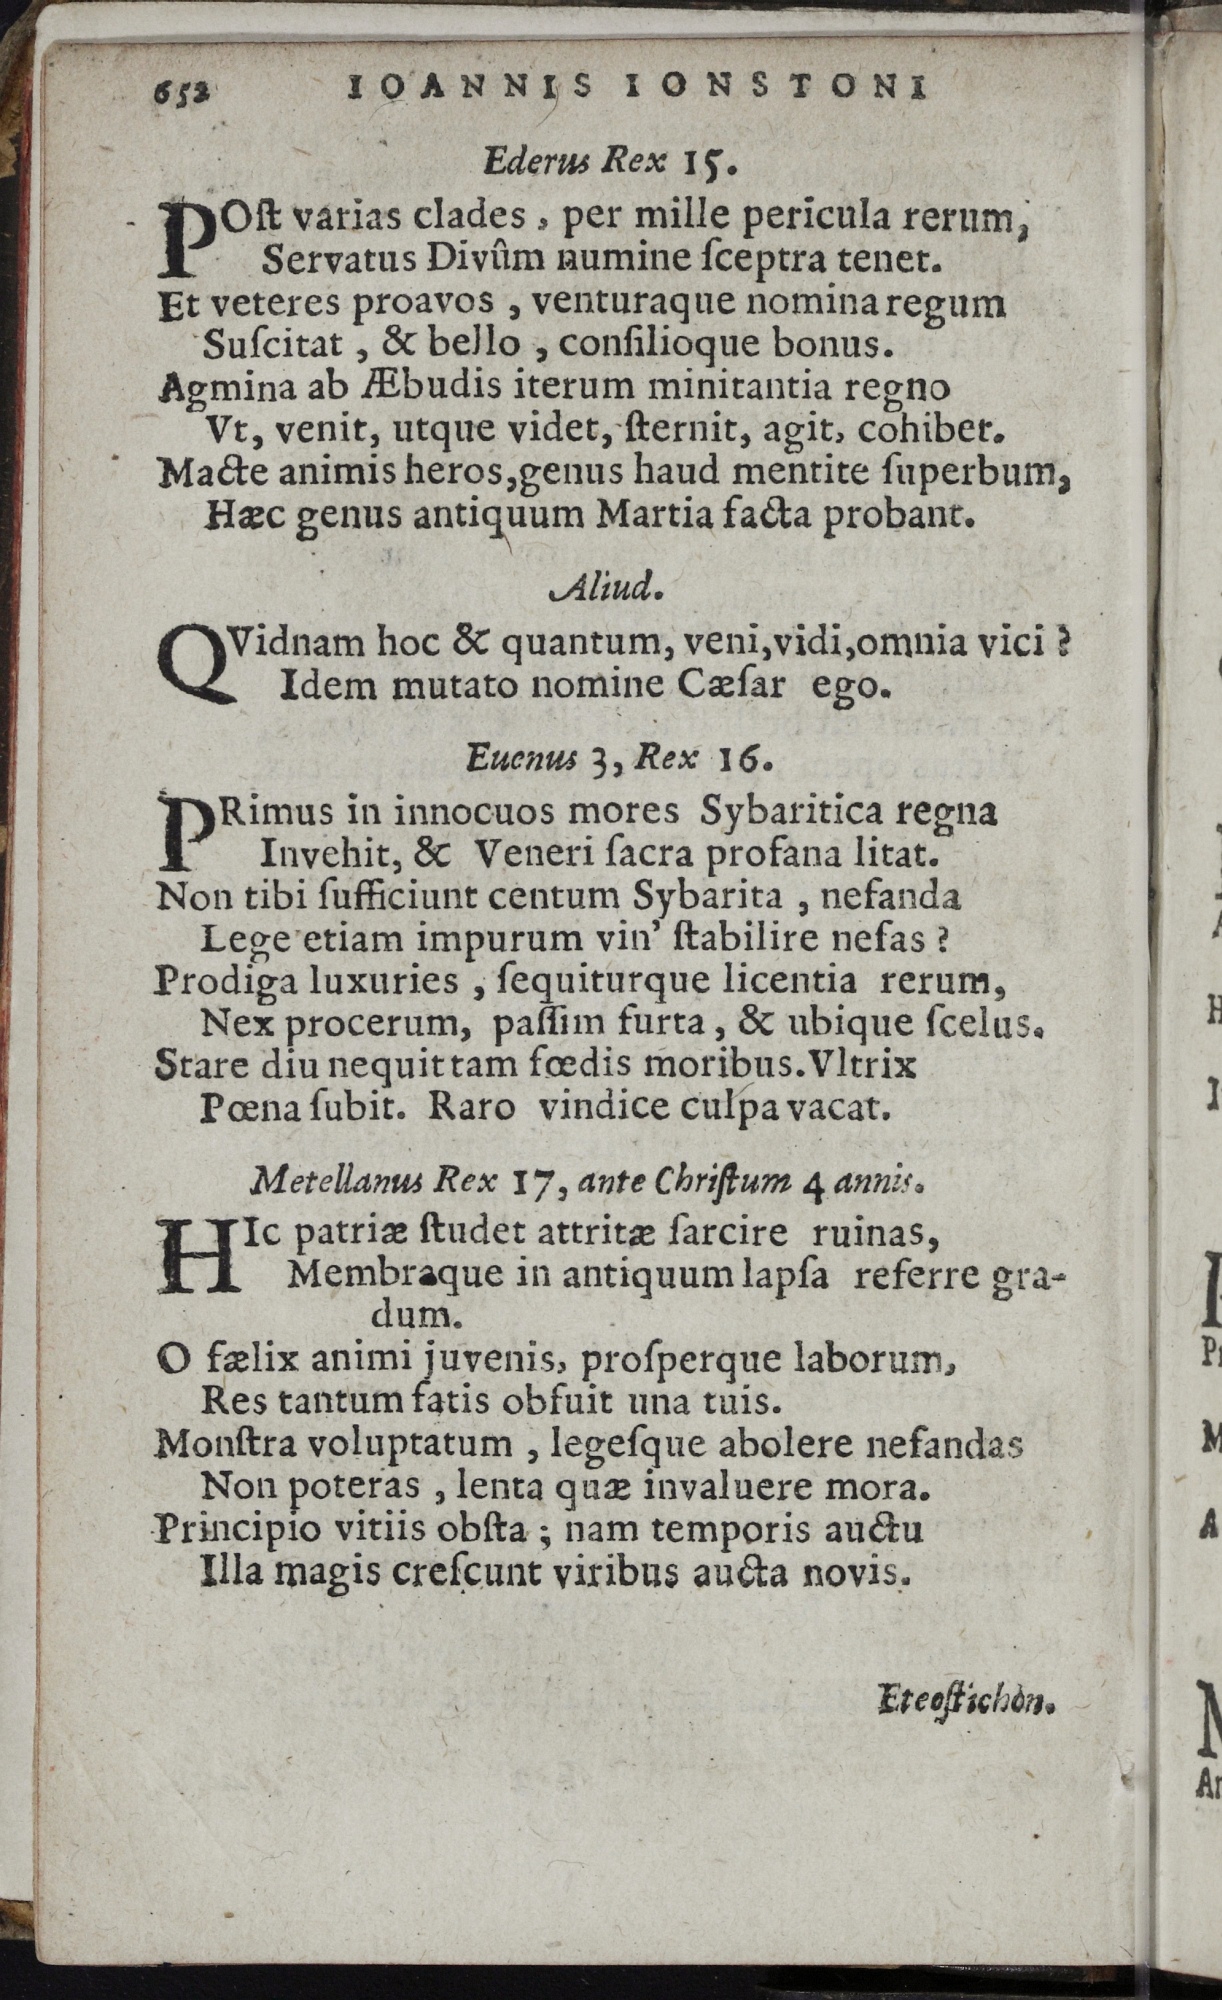 652 IOANNIS IONSTONI
Ederus Rex 15.
POſt varias clades, per mille pericula rerum,
Servatus Divûm numine ſceptra tenet.
Et veteres proavos, venturaque nomina regum
Suſcitat, & bello, conſilioque bonus.
Agmina ab Æbudis iterum minitantia regno
Vt, venit, utque videt, ſternit, agit, cohibet.
Macte animis heros, genus haud mentite ſuperbum,
Hæc genus antiquum Martia facta probant.
Aliud.
QVidnam hoc & quantum, veni, vidi, omnia vici?
Idem mutato nomine Cæſar ego.
Euenus 3, Rex 16.
PRimus in innocuos mores Sybaritica regna
Invehit, & Veneri ſacra profana litat.
Non tibi ſufficiunt centum Sybarita, nefanda
Lege etiam impurum vin' ſtabilire nefas?
Prodiga luxuries, ſequiturque licentia rerum,
Nex procerum, paſſim furta, & ubique ſcelus.
Stare diu nequit tam fœdis moribus. Vltrix
Pœna ſubit. Raro vindice culpa vacat.
Metellanus Rex 17, ante Chriſtum 4 annis.
HIc patriæ ſtudet attritæ ſarcire ruinas,
Membraque in antiquum lapſa referre gra-
dum.
O fælix animi juvenis, proſperque laborum,
Res tantum fatis obfuit una tuis.
Monſtra voluptatum, legeſque abolere nefandas
Non poteras, lenta quæ invaluere mora.
Principio vitiis obſta; nam temporis auctu
Illa magis creſcunt viribus aucta novis.
Eteoſtichòn.